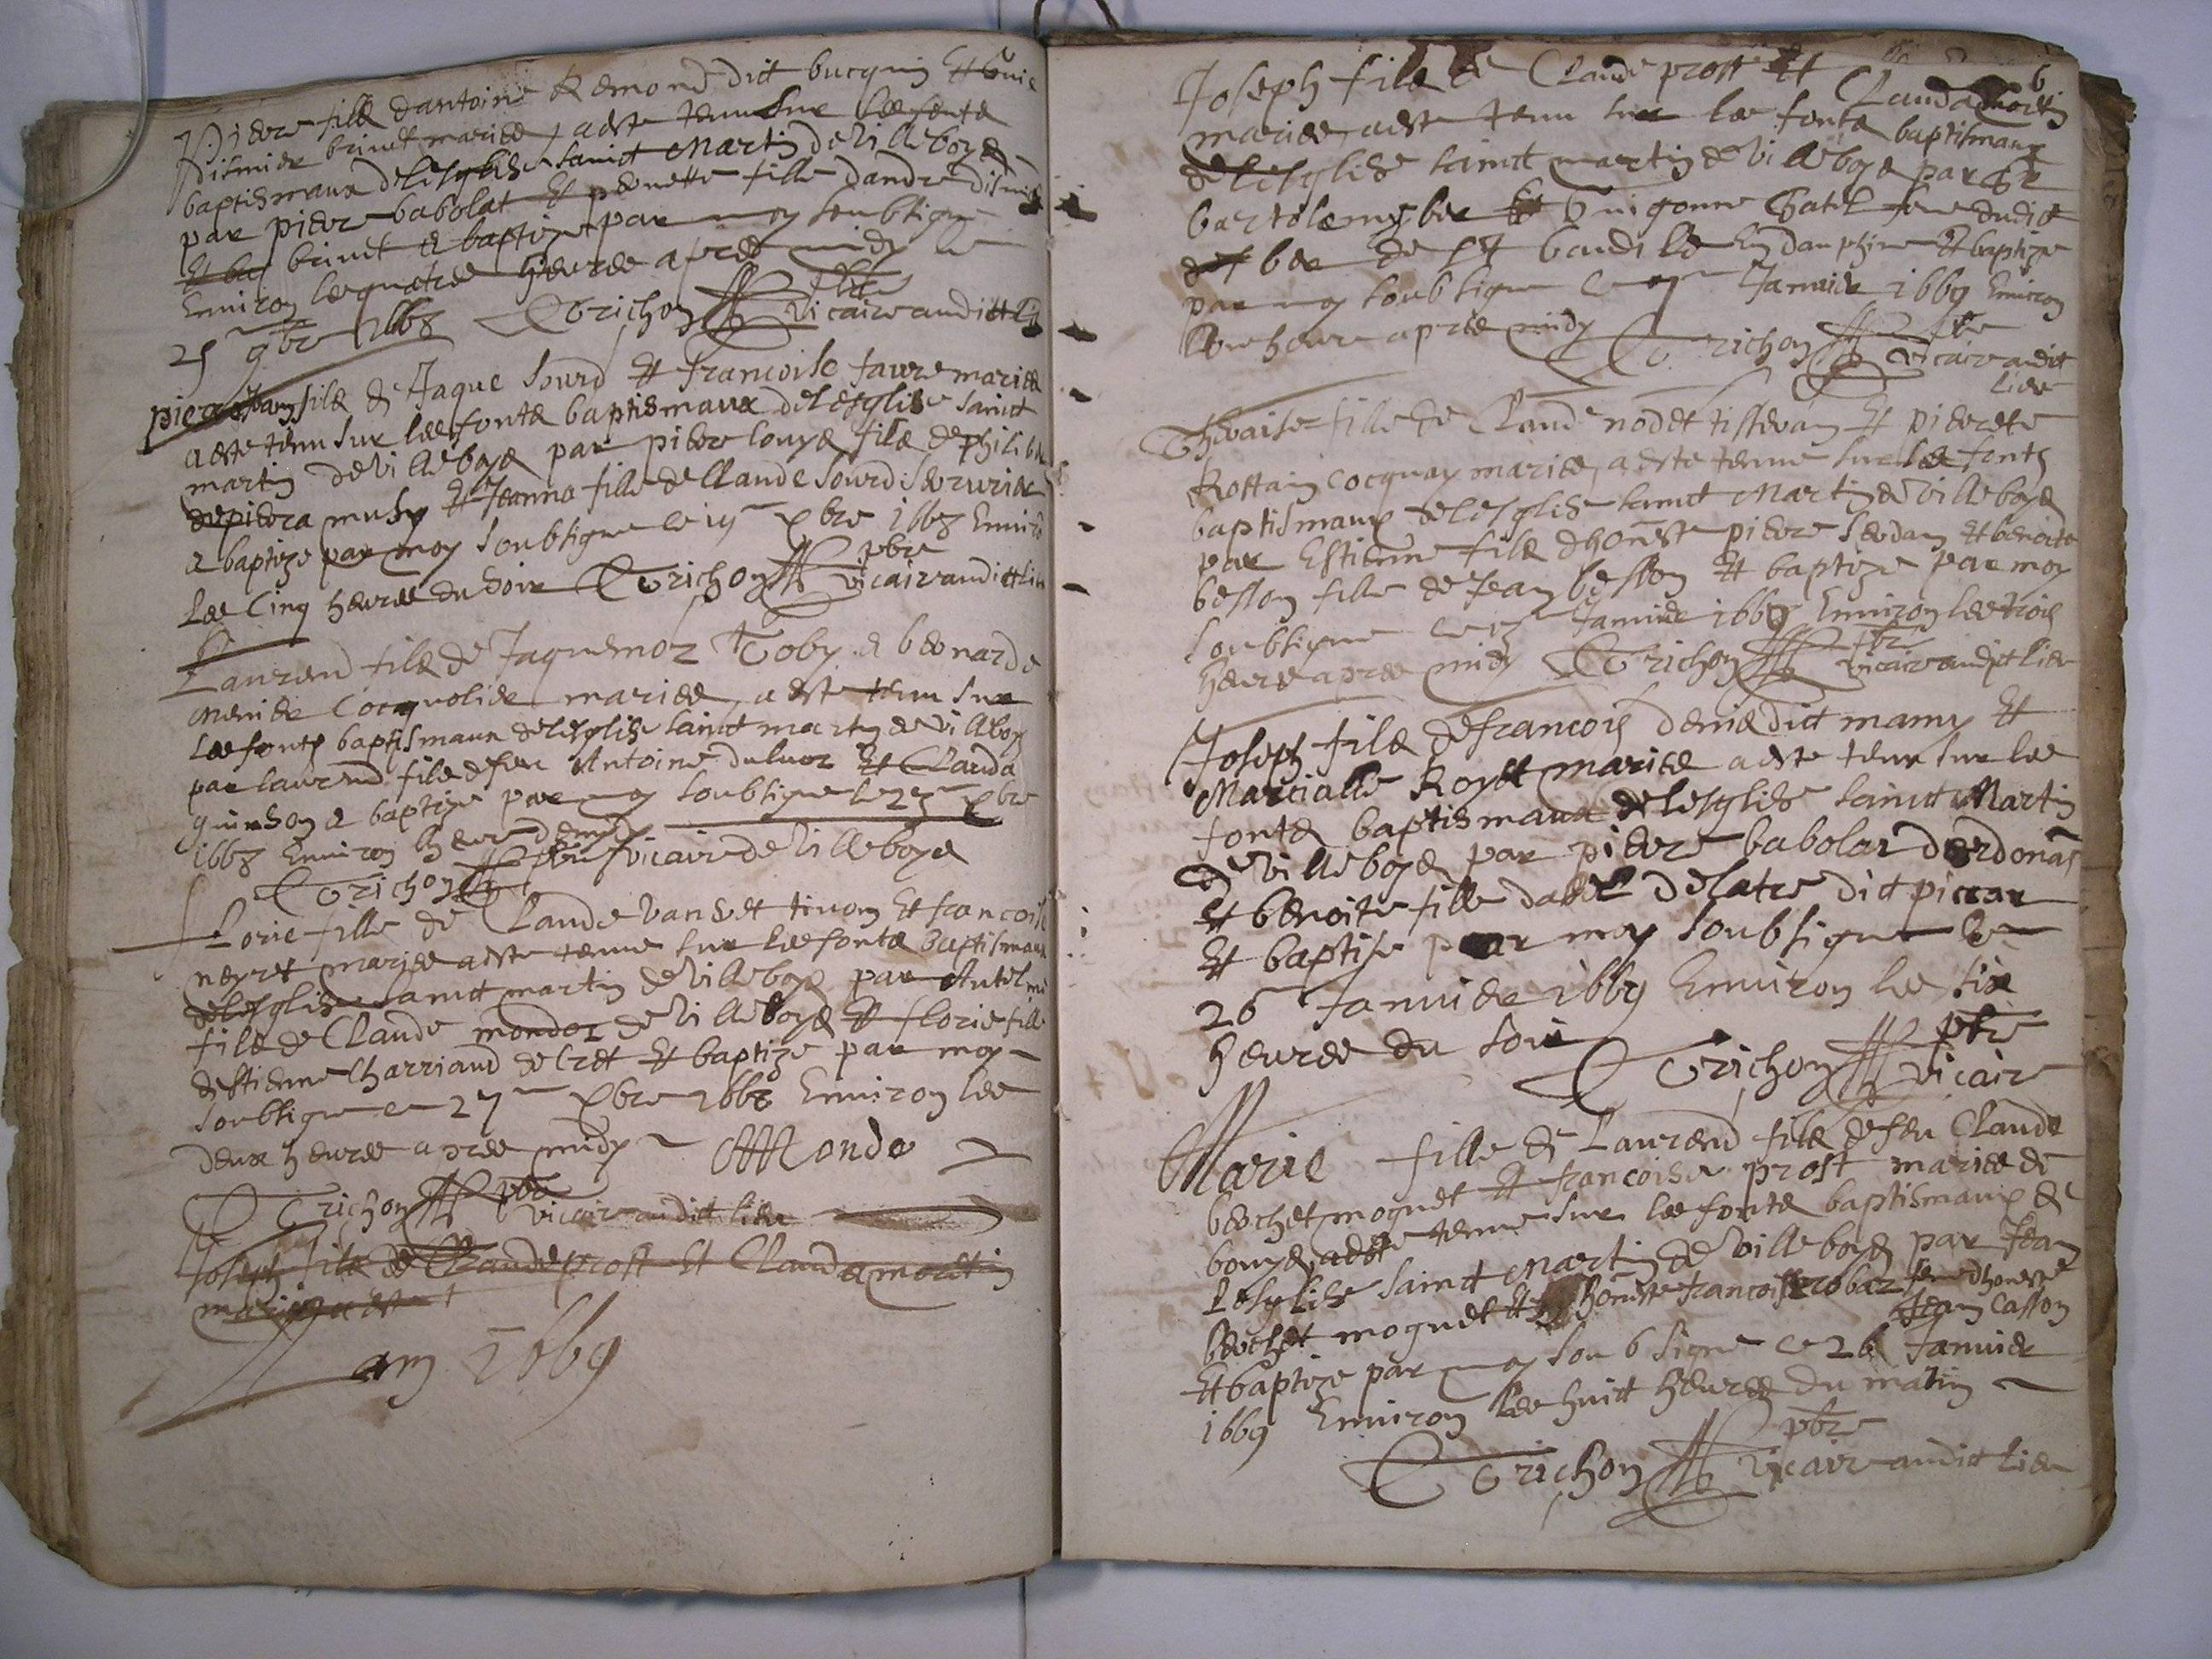 Piere filz dantoine Remond dict bucquin Et
disinier brinet mariez adste tenu sur les fontz
baptismaux de lesglise sainct Martin de Villeboys
par piere babolat Et peronette fille dandre
Et brinet Et baptize par moy soubsigne
Environ les quatre heures apres midy le
25 9bre 1668 Trichon pbre vicaire audict lieu
Jean filz de Jaque Sourd Et francoise favre mariez
adste tenu sur les fontz baptismaux de lesglise sainct
martin de Villeboys par piere louys filz de philib
de piera musy Et Jeanna fille de Claude Sourd
a baptize par moy soubsigne ce Xbre 1668 Enviro
Les Cinq heures du soir Trichon pbre vicaire audict lieu
Laurend filz de Jaquemoz Toby a bernarde
cocquolier mariez adste tenu sur
Les fontz baptismaux de lesglise sainct martin de villeboys
par laurend filz de feu Antoine duluoz Et Clauda
quinson a baptize par moy soubsigne le Xbre
1668 Environ heure de midy
Trichon pbre vicaire de Villeboys
florie fille de Claude Et francoise
neyret mariez adste tenue sur les fontz baptismaux
de lesglise sainct martin de Villeboys par Antelme
filz de Claude mondoz de Villeboys Et florie fille
destienne Charriand de Cret Et baptize par moy
soubsigne ce 27 Xbre 1668 Environ les
deux heures apres midy Mondo
Trichon pbre vicaire audict lieu
Joseph filz de Claude prost Et Clauda moultin
mariez adste
an 1669
6
Joseph filz de Claude prost Et Clauda
mariez adste tenu sur les fontz baptismaux
de lesglise sainct martin de Villeboys par Sr
bartolemy ber Et Guigonne Gatel feme dudict
ber de En dauphine Et baptize
par moy soubsigne ce Janvier 1669 Environ
Une heure apres midy Trichon pbre
vicaire audict
lieu
fille de Claude nodet tisseran Et pierete
Rostain cocquay mariez adste tenue sur les fontz
baptismaux de lesglise sainct Martin de Villeboys
par Estienne filz dhoneste piere serdan Et benoite
besson fille de Jean besson Et baptize par moy
soubsigne ce Janvier 1669 Environ les trois
heures apres midy Trichon pbre vicaire audict lieu
Joseph filz de francois denis dict mamy Et
Marcialle Royet mariez adste tenu sur les
fontz baptismaux de lesglise sainct Martin
de Villeboys par piere babolat dordonas
Et benoite fille dabel delatre dict picar
Et baptise par moy soubsigne le
26 Janvier 1669 Environ les six
heures du soir
Trichon pbre
vicaire
Marie fille de Laurend filz de feu Claude
berchet moquet Et francoise prost mariez de
bouys adste tenue sur les fontz baptismaux de
Lesglise sainct Martin de Villeboys par Jean
berchet moquet Et honeste francoise robaz feme dhoneste
Jean Casson
Et baptize par moy soubsigne ce 26 Janvier
1669 Environ les huict heures du matin
Trichon pbre
vicaire audict lieu